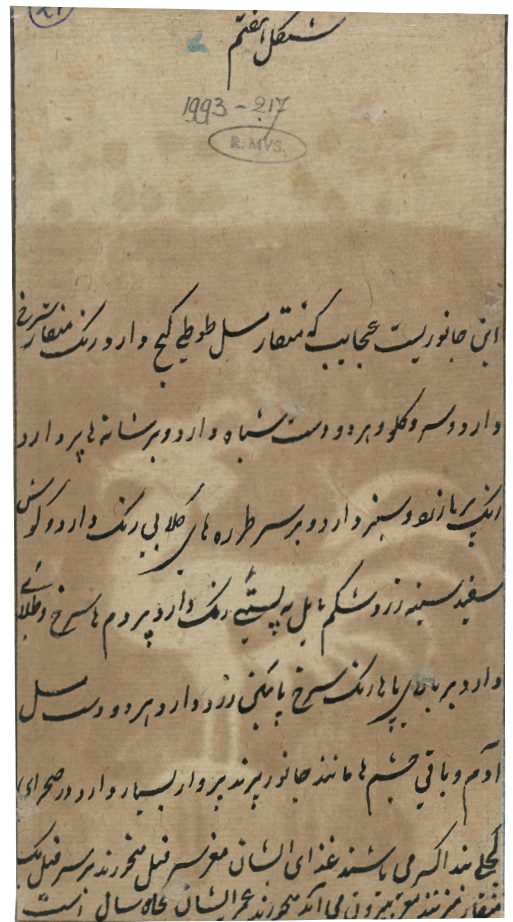 شکل هفتم
1993-217
R: MVS.
این جانوریست عجایب که منقار مسل طوطی کج دارد رنک منقار سرخ
دارد و سر و کلو و هر دو دست سیاه دارد و بر شانه ها پر دارد
رنک پرها زرد و سبز دارد و بر سر طره های کلابی رنک دارد و کوش
سفید سینه زرد و شکم مایل به پستئی رنک دارد پر دم ها سرخ و طلائی
دارد بر بالای پاها رنک سرخ پا یکنی زرد دارد هر دو دست مسل
آدم و باقی چشم ها مانند جانور پرند پرواز بسیار دارد در صحرای
کجلی بند اکسر می باشند غذای ایشان مغز سر فیل میخورند بر سر فیل یک
منقار میزنند مغز بیرون می آید میخورند عمر ایشان پنجاه سال است